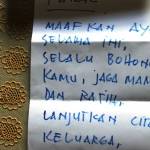 MAAFKAN AY
SELAMA INI,
SELALU BOHONG
KAMU, JAGA MAM
DAN RATIH,
LANJUTKAN CITA
KELUARGA,